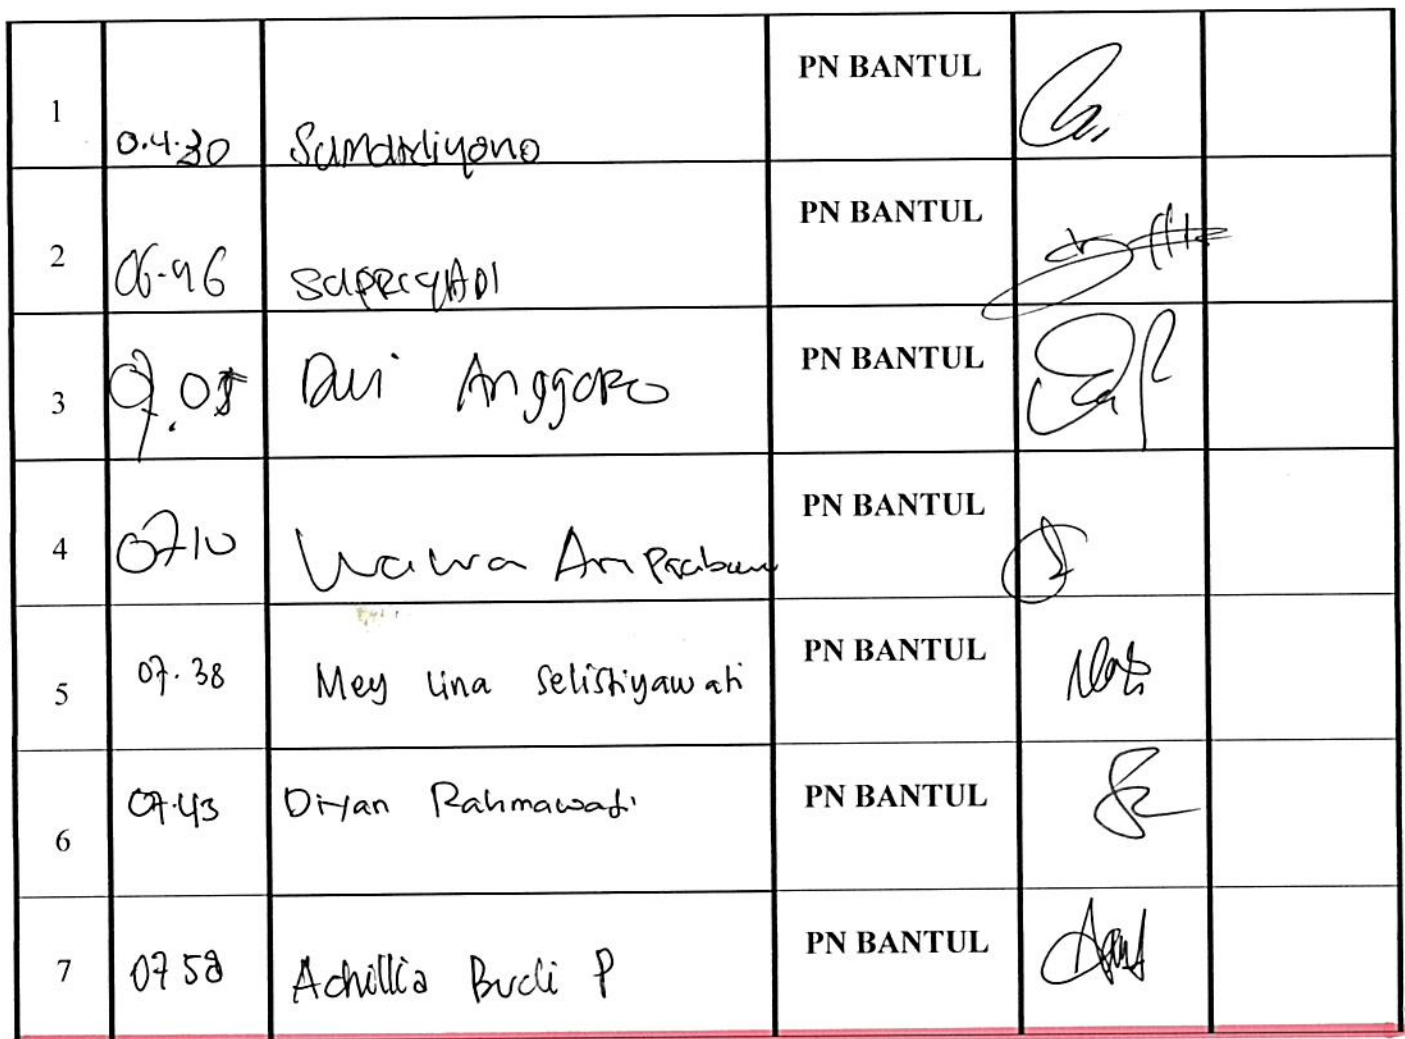 1 0.4.30 Sumardiyono PN BANTUL
2 06-46 SUPRIYADI PN BANTUL
3 07.05 Dwi Anggoro PN BANTUL
4 0710 Wawa Ari Prabowo PN BANTUL
5 07.38 Mey Lina Selistiyawati PN BANTUL
6 07.43 Diyan Rahmawati PN BANTUL
7 07 58 Achillia Budi P PN BANTUL